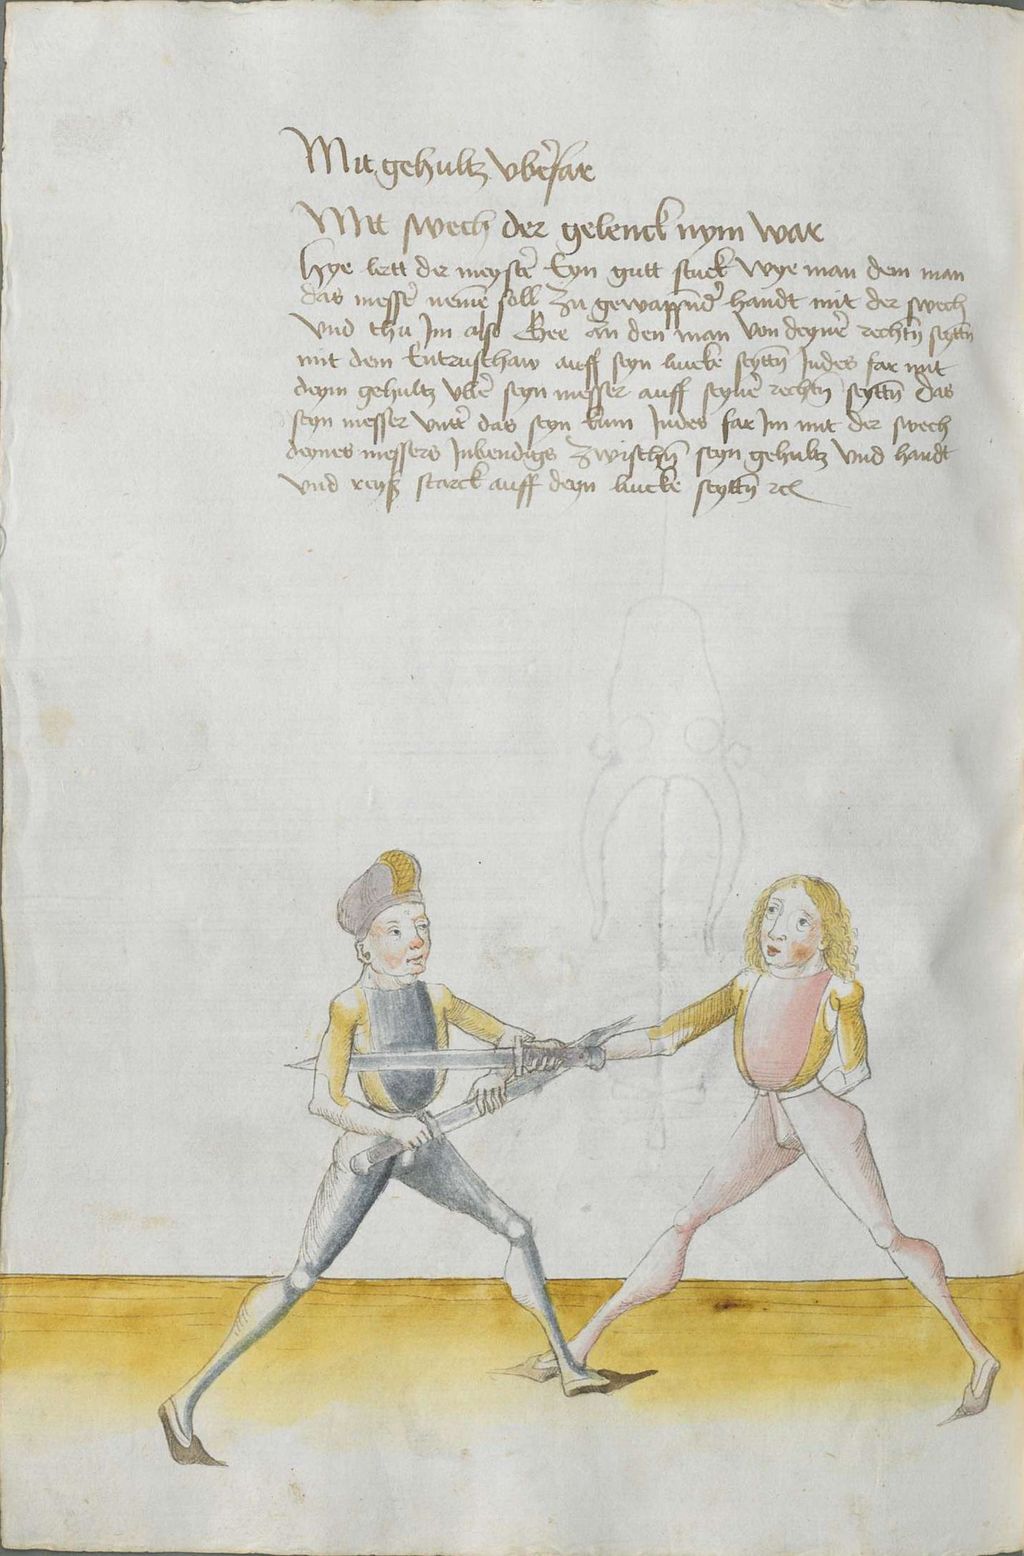 Mit gehultz vber far
Mit swech der gelenck nym war
Hye lertt der meyster Eyn gutt stuck wye man dem man
das messer neme soll zu gewappnder handt mit der swech
vnd thu Im also Gee an den man von deyner rechtn seyttn
mit dem Entruschaw auff seyn lincke seyttn Indes far mit
deym gehultz vber seyn messer auff seyner rechtn seyttn das
seyn messer vntter das seyn kum Indes far Im mit der swech
deynes messers Inbendigs zwischn seyn gehultz vnd handt
vnd reyß starck auff deyn lincke seyttn rc